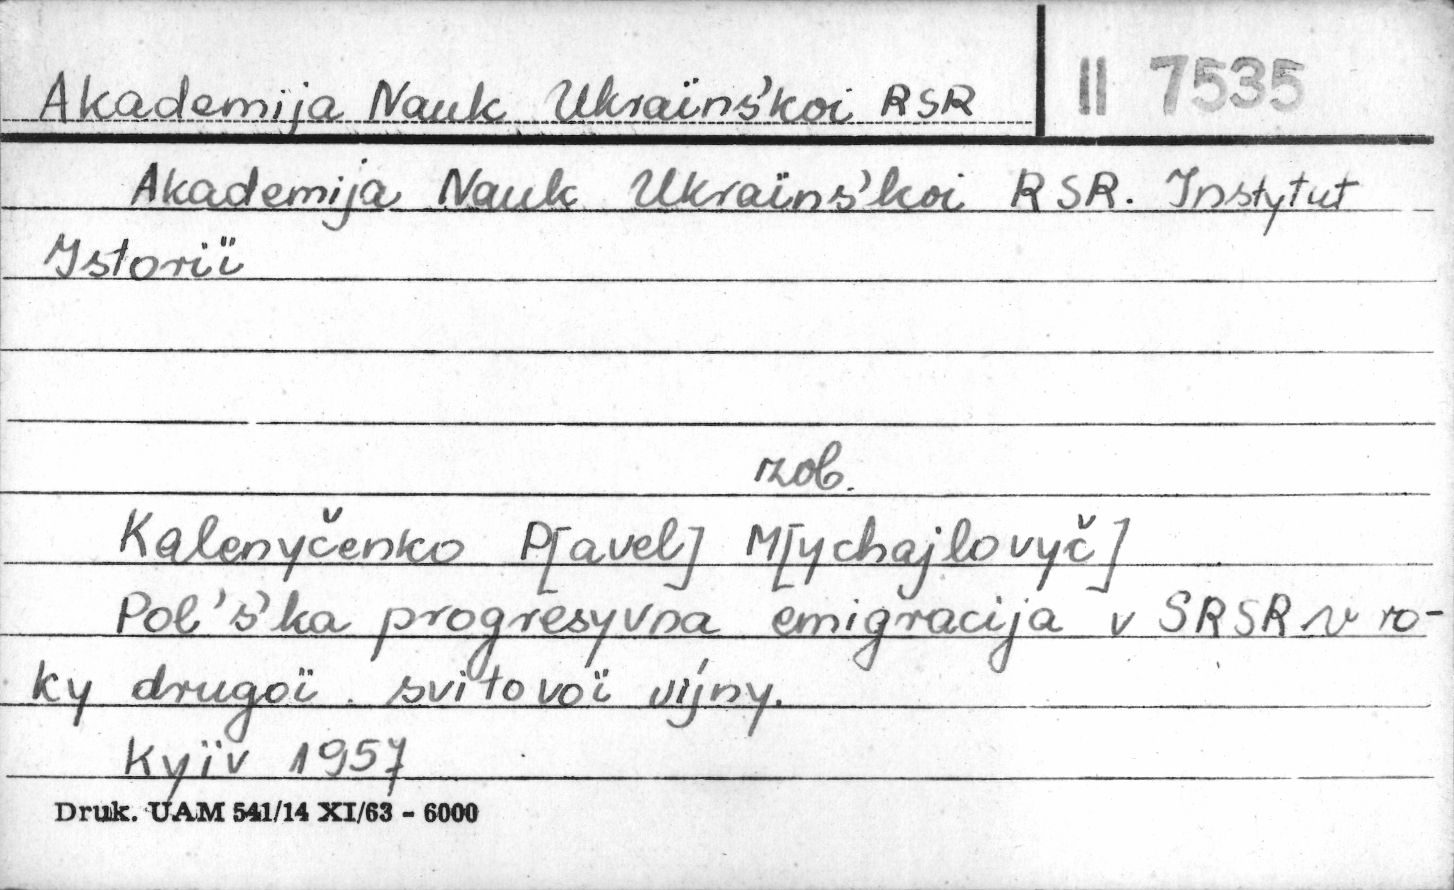 Akademija Nauk Ukraïnś'koi RSR II 7535
Akademija Nauk Ukraïnś'koi RSR. Instytut
Istoriï
zob.
Kalenyčenko P[avel] M[ychajlovyč]
Pol'ś'ka progresyvna emigracija v SRSR v ro-
ky drugoï svitovoï vijny.
Kyïv 1957
Druk. UAM 541/14 XI/63 - 6000